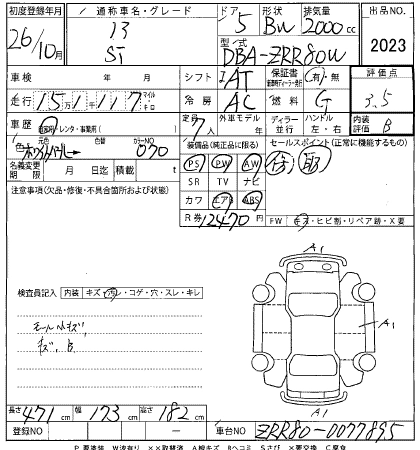 初度登録年月 通称車名・グレード ドア 形状 排気量 出品NO.
26/10月 5 BW 2000cc 2023
型式 DBA-ZRR80W
車検 年 月 シフト IAT 保証書 有・無 評価点
走行 15万1千117 マイル キロ 冷房 AC 燃料 G 3.5
車歴 自家用・レンタ・事業用( ) 定員 7人 外車モデル 年 ディーラー 並行 ハンドル 左・右 内装評価 B
色 元色 色替 カラーNO 070
装備品(純正品に限る) セールスポイント(正常に機能するもの)
名義変更期限 月 日迄 積載 t
PS PW AW 保 取
SR TV ナビ
注意事項(欠品・修復・不具合箇所および状態)
カワ エアB ABS
R券 12470円 FW キズ・ヒビ割・リペア跡・X要
A1
検査員記入 内装 キズ・汚レ・コゲ・穴・スレ・キレ
A1
モール小キズ,
キズ, B
A1
長さ 471cm 幅 173cm 高さ 182cm
登録NO ー 車台NO ZRR80-0077895
P 要塗装 W波有り XX取替済 A線キズ Bヘコミ Sさび X要交換 C腐食